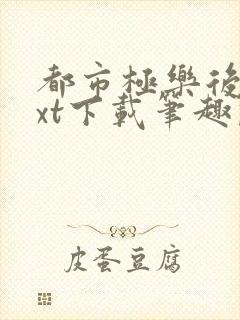 都市極樂後
xt下載筆趣
皮蛋豆腐